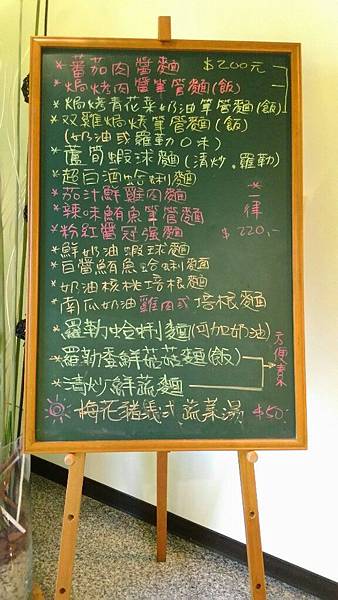 *蕃茄肉醬麵 $200元
*焗烤肉醬筆管麵(飯)
*焗烤青花菜奶油筆管麵(飯)
*双雞焗烤筆管麵(飯)
(奶油或羅勒口味)
*蘆筍蝦球麵(清炒.羅勒)
*超白酒蛤蜊麵
*茄汁鮮雞肉麵
*辣味鮪魚筆管麵
*粉紅醬冠強麵
*一律 $220.-
*鮮奶油蝦球麵
*白醬鮪魚蛤蜊麵
*奶油核桃培根麵
*南瓜奶油雞肉或培根麵
*羅勒蛤蜊麵(可加奶油)
*羅勒香鮮菇菇麵(飯)
*清炒鮮蔬麵
方便素
梅花豬義式蔬菜湯 $50